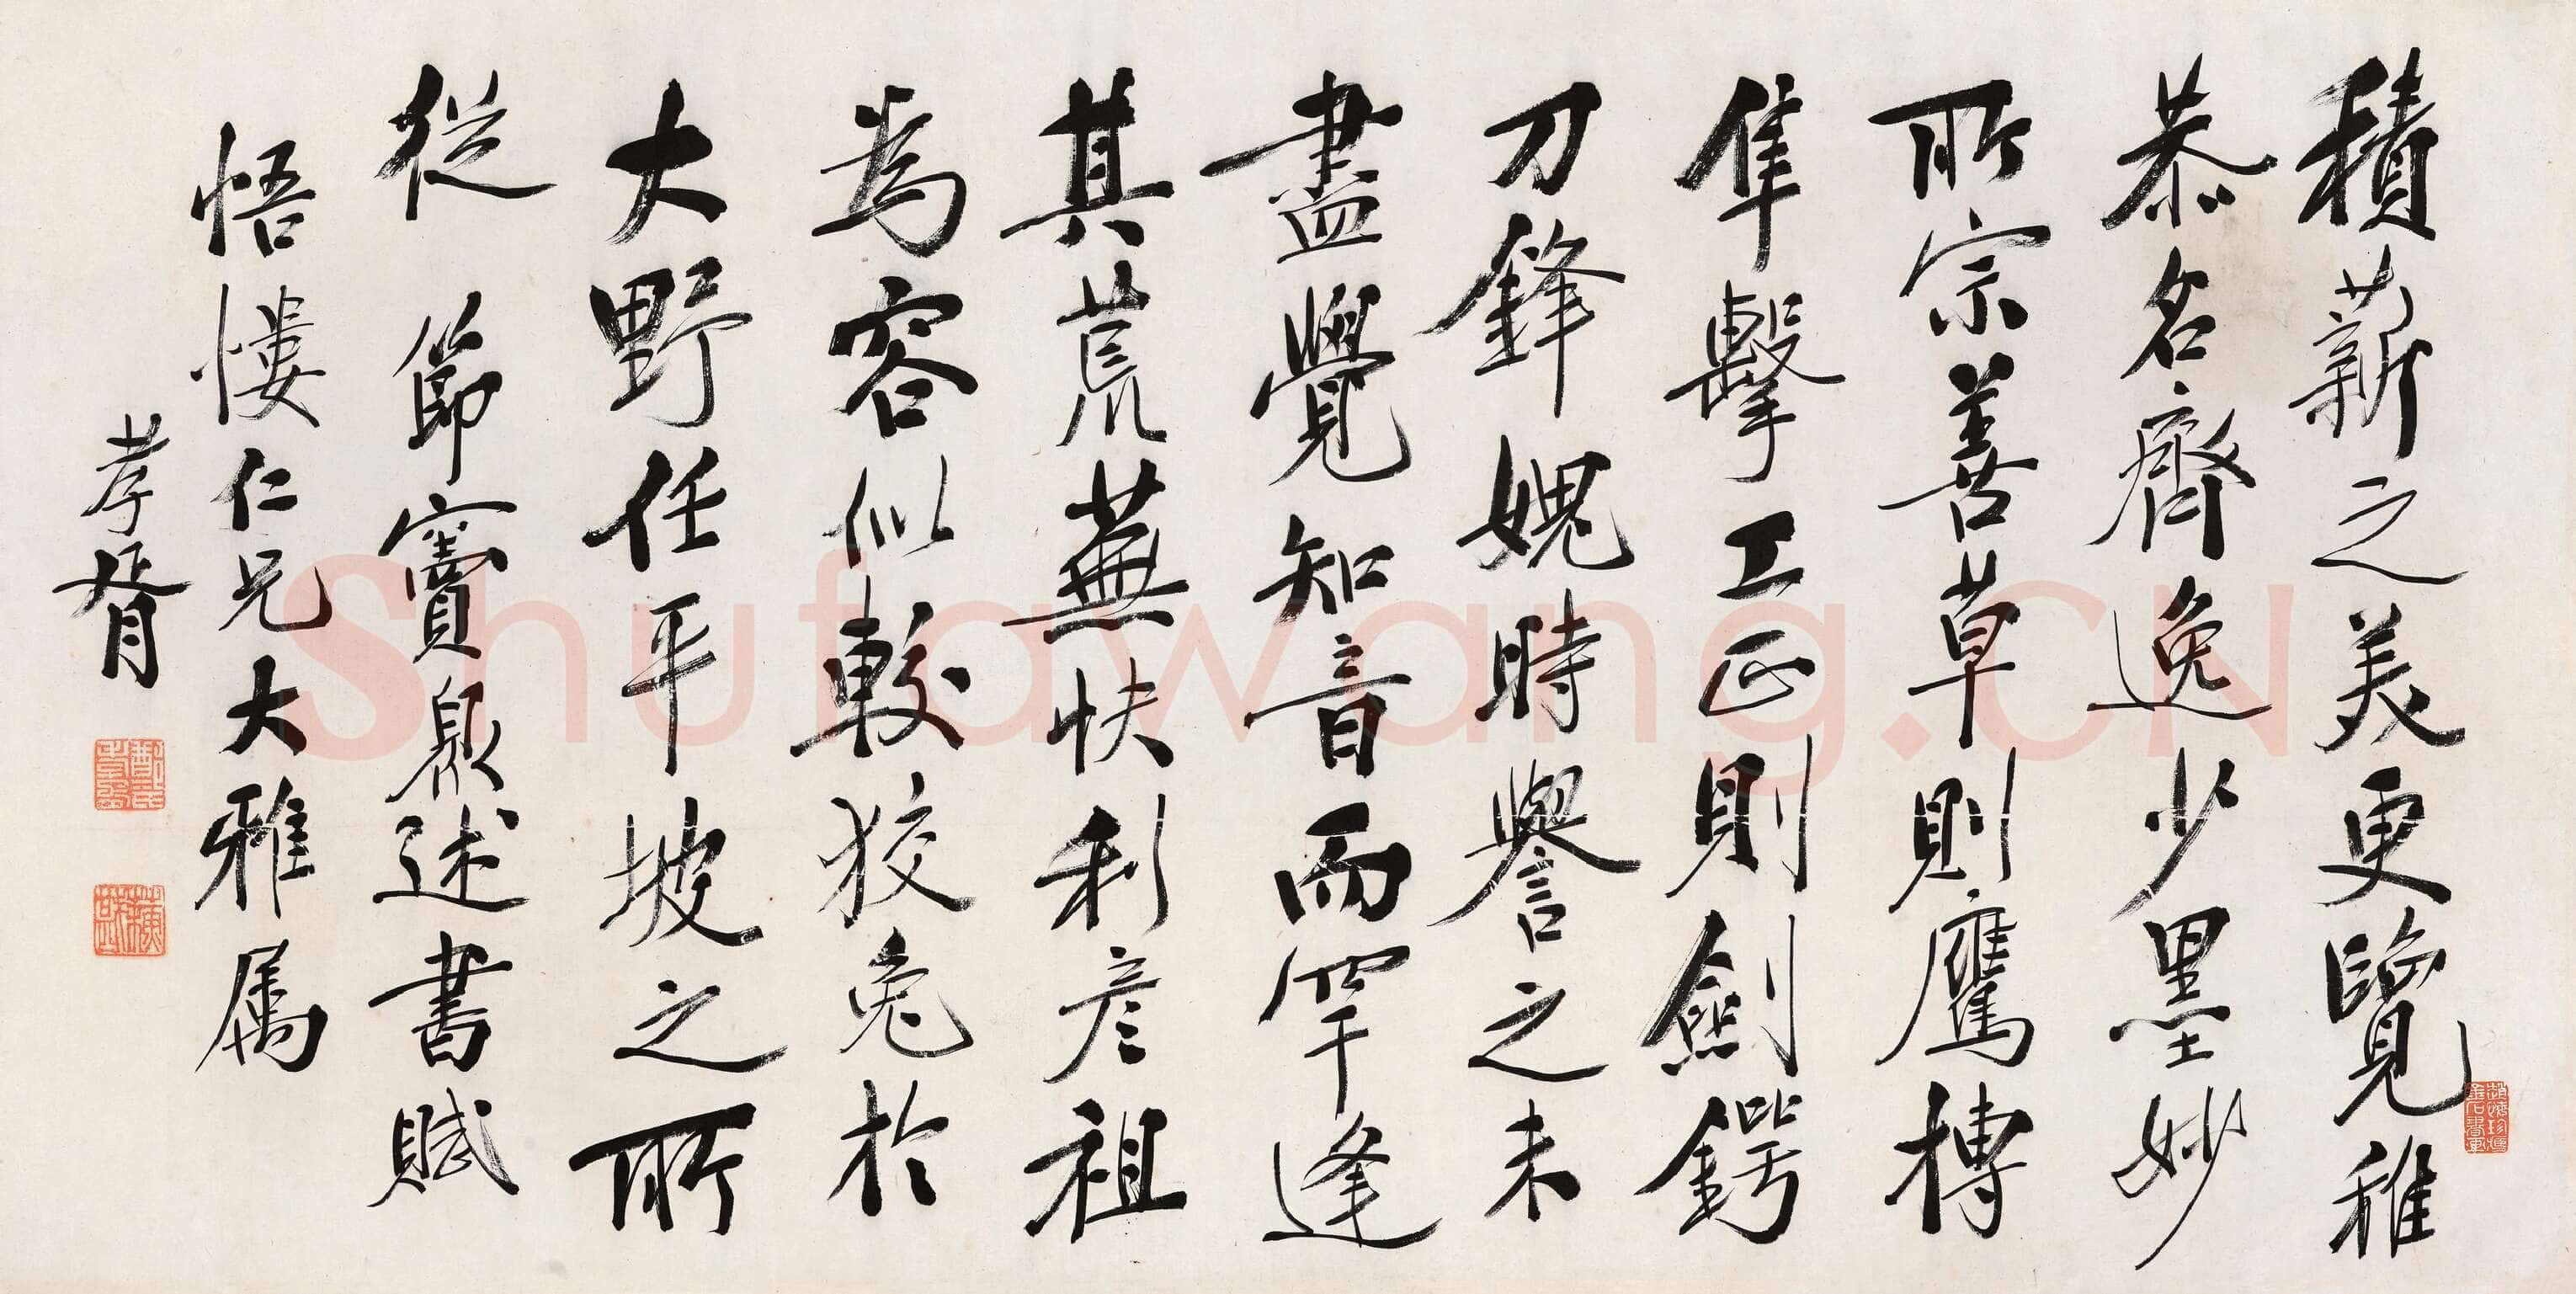 積薪之美更覽稚
恭名齊逸少墨妙
所宗善草則鷹摶
隼擊工正則劍鍔
刀鋒媿時譽之未
盡覺知音而罕逢
其荒蕪快利彥祖
為容似較狡兔於
大野任平坡之所
從 節竇臮述書賦
悟慺仁兄大雅属
孝胥
Shufawang.CN